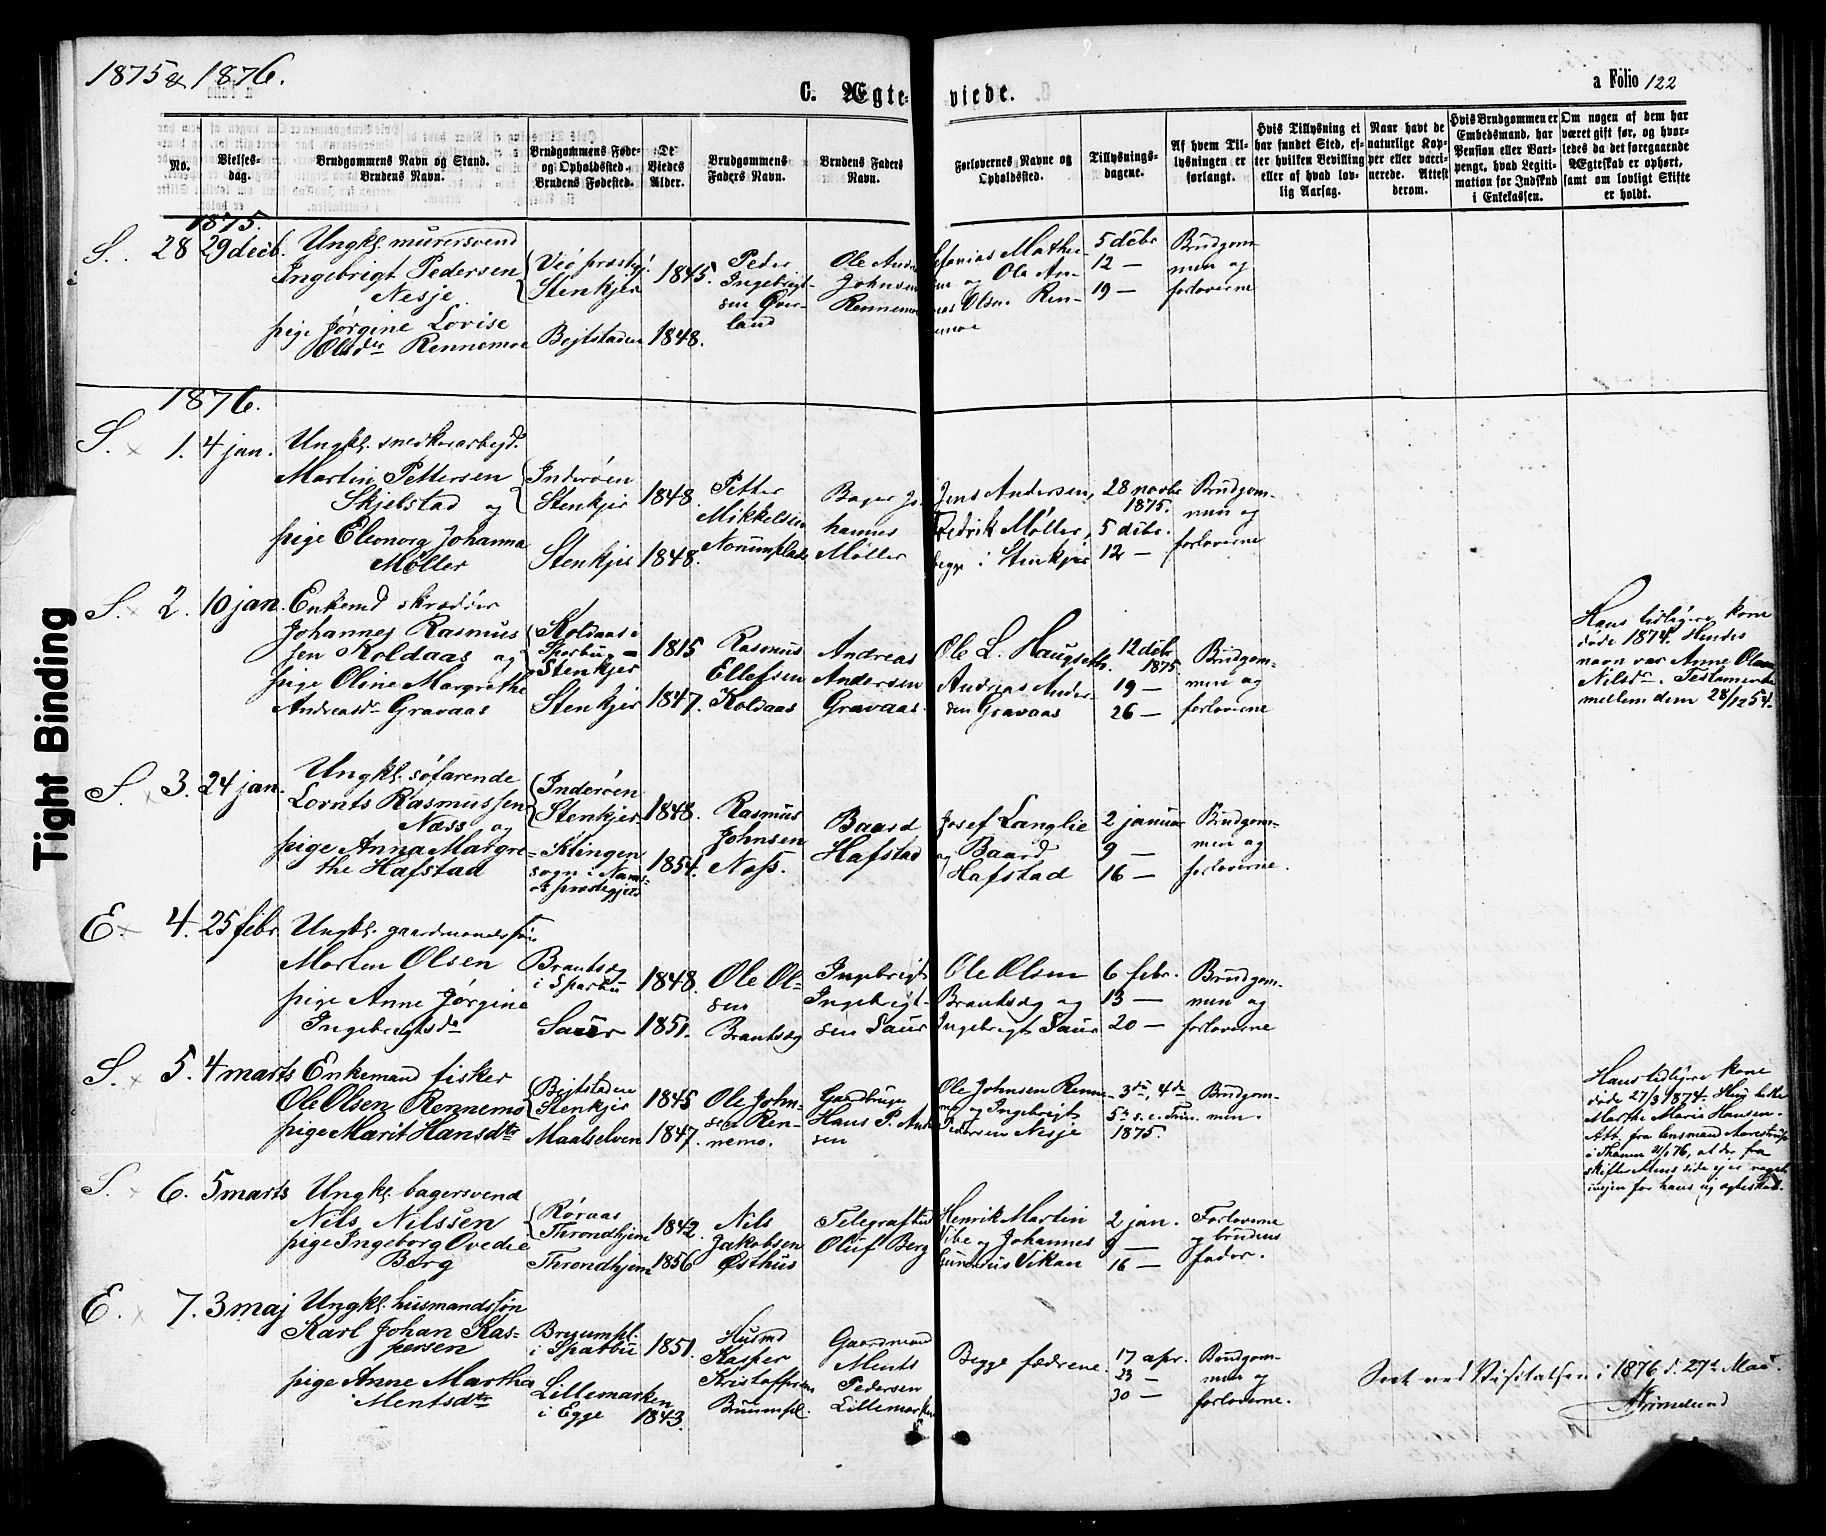 1875 & 1876.
C. Ægte-viede.
a Folio 122
No.
Vielses-
dag.
Brudgommens Navn og Stand.
Brudens Navn.
Brudgommens Føde-
og Opholdssted.
Brudens Fødested.
De
Viedes
Alder.
Brudgommens
Faders Navn.
Brudens Faders
Navn.
Forlovernes Navne og
Opholdssted.
Tillysnings-
dagene.
Af hvem Til-
lysningen er
forlangt.
Hvis Tillysning ei
har fundet Sted, ef-
ter hvilken Bevilling
eller af hvad lov-
lig Aarsag.
Naar havt de
naturlige Kop-
per eller vacci-
nerede. Attest
derom.
Hvis Brudgommen er
Embedsmand, har
Pension eller Vart-
penge, hvad Legiti-
mation for Indskud
i Enkekassen.
Om nogen af dem har
været gift før, og hvor-
ledes da det foregaaende
Ægteskab er ophørt,
samt om lovligt Skifte
er holdt.
1875.
S. 28 29 decb.
Ungkl. murersvend
Ingebrigt Pedersen
Nesje
pige Jørgine Lovise
Olsdr Rennemoe
Stenkjer
Bejtstaden
1845.
1848.
Peder
Ingebrigt-
sen Over-
land
Ole Andr
Johnsen
Rennemo
Mathe-
sen og Ole An-
Olsen Ren-
nemoe
5 decbr
12 —
19 —
Brudgom-
men og
forloverne
1876.
S. 1. 4 jan.
Ungkl. snedkerarbejd.
Martin Pettersen
Skjelstad og
pige Eleonora Johanna
Møller
Inderøen
Stenkjer
Stenkjer
1848.
1848.
Petter
Mikkelsen
Bager Jo-
hannes
Møller
Jens Andersen,
Fredrik Møller,
begge i Stenkjer
28 novbr
1875.
5 decbr.
12 —
Brudgom-
men og
forloverne
S. 2. 10 jan.
Enkemd skrædder
Johannes Rasmus
sen Koldaas og
pige Oline Margrethe
Andreasdr Gravaas
Koldaas i
Sparbu -
Stenkjer
Stenkjer
1815
1847.
Rasmus
Ellefsen
Koldaas
Andreas
Andersen
Gravaas.
Ole L. Haugseth.
Andreas Ander-
sen Gravaas
12 decbr
1875.
19 —
26 —
Brudgom-
men og
forloverne
Hans tidligere kone
døde 1874. Hendes
navn var Anne Olava
Nilsdr. Testamente
mellem dem 28/12 54.
S. 3. 24 jan.
Ungkl. søfarende
Lornts Rasmussen
Næss og
pige Anna Margre-
the Hafstad
Inderøen
Stenkjer
Klingen
sogn i Nams-
os præstegjeld
1848.
1854.
Rasmus
Johnsen
Næss.
Baard
Hafstad
Josef Langlie
og Baard
Hafstad
2 januar
9 —
16 —
Brudgom-
men og
forloverne.
E. 4. 25 febr.
Ungkl. gaardmandssøn
Morten Olsen
pige Anne Jørgine
Ingebrigtsdr
Brandsæg
i Sparbu
Saur
1848.
1851.
Ole Ol-
sen
Brandsæg
Ingebrigt
Ingebrigt-
sen Saur
Ole Olsen
Brandsæg og
Ingebrigt Saur
6 febr.
13 —
20 —
Brudgom-
men og
forloverne
S. 5. 4 marts
Enkemand fisker
Ole Olsen Rennemo
pige Marit Hansdtr
Bejtstaden
Stenkjer
Maalselven
1845
1847.
Ole John-
sen Ren-
nemo.
Gaardbruger
Hans P. Ander
sen
Ole Johnsen Renne-
mo og Ingebrigt
Pedersen Nesje
3de, 4de
5te s. e. Trin.
1875.
Brudgom-
men.
Hans tidligere kone
døde 27/3 1874. Hun hette
Marthe Marie Hansen.
Att. fra lensmand
i 21/1 76, at der fra
skiftets side ej er noget
ivejen for hans ny ægteskab.
S. 6. 5 marts
Ungkl. bagersvend
Nils Nilssen
pige Ingeborg Ovedie
Berg
Røraas
Throndhjem
Throndhjem
1842.
1856
Nils
Jakobsen
Østhus
Oluf Berg
Henrik Martin
Vibe og Johannes
Vikan
2 jan.
9 —
16 —
Forloverne
og brudens
fader.
E. 7. 3 maj
Ungkl. husmandssøn
Karl Johan Kas-
persen
pige Anne Martha
Mentsdtr
i Sparbu
Lillemarken
i Egge
1851.
1843.
Husmd
Kasper
Kristoffersen
Gaardmand
Ments
Pedersen
Lillemarken
Begge fædrene.
17 apr.
23 —
30 —
Brudgom-
men og
forloverne.
Seet ved Visitatsen i 1876 d. 27de Mai.
Tight Binding